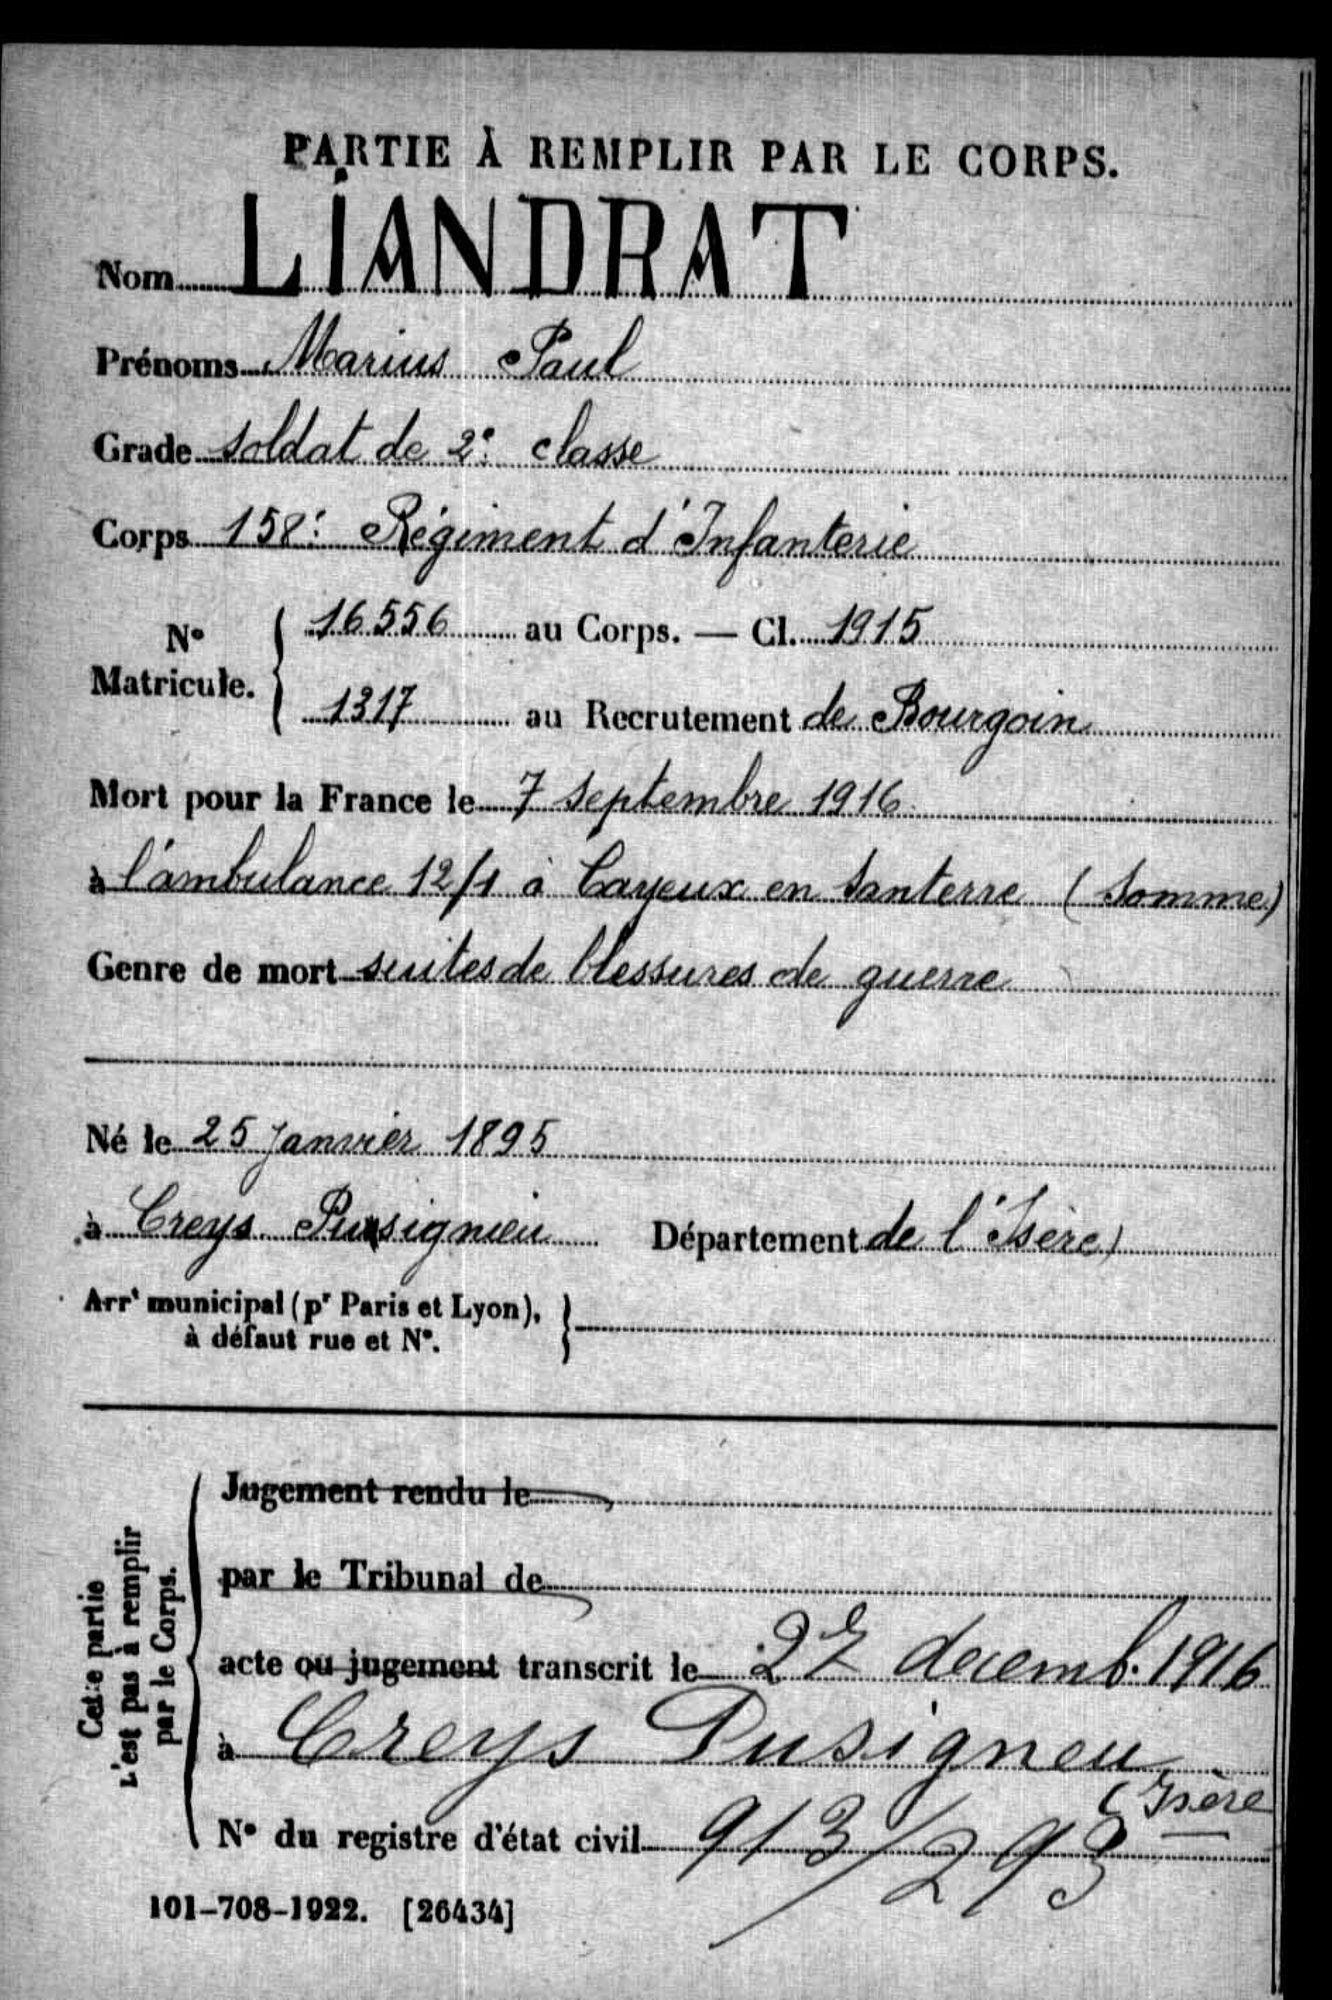 PARTIE À REMPLIR PAR LE CORPS.
Nom LIANDRAT
Prénoms Marius Paul
Grade soldat de 2e classe
Corps 158e Régiment d'Infanterie
No Matricule. { 16556 au Corps. — Cl. 1915
1317 au Recrutement de Bourgoin
Mort pour la France le 7 septembre 1916
à l'ambulance 12/1 à Cayeux en Santerre (Somme)
Genre de mort suites de blessures de guerre
Né le 25 janvier 1895
à Creys Pusignieu Département de l'Isère)
Arrt municipal (pr Paris et Lyon), }
à défaut rue et No.
Cette partie
n'est pas à remplir
par le Corps.
Jugement rendu le
par le Tribunal de
acte ou jugement transcrit le 27 decemb. 1916
à Creys Pusigneu
(Isère
No du registre d'état civil 913/293
101-708-1922. [26434]